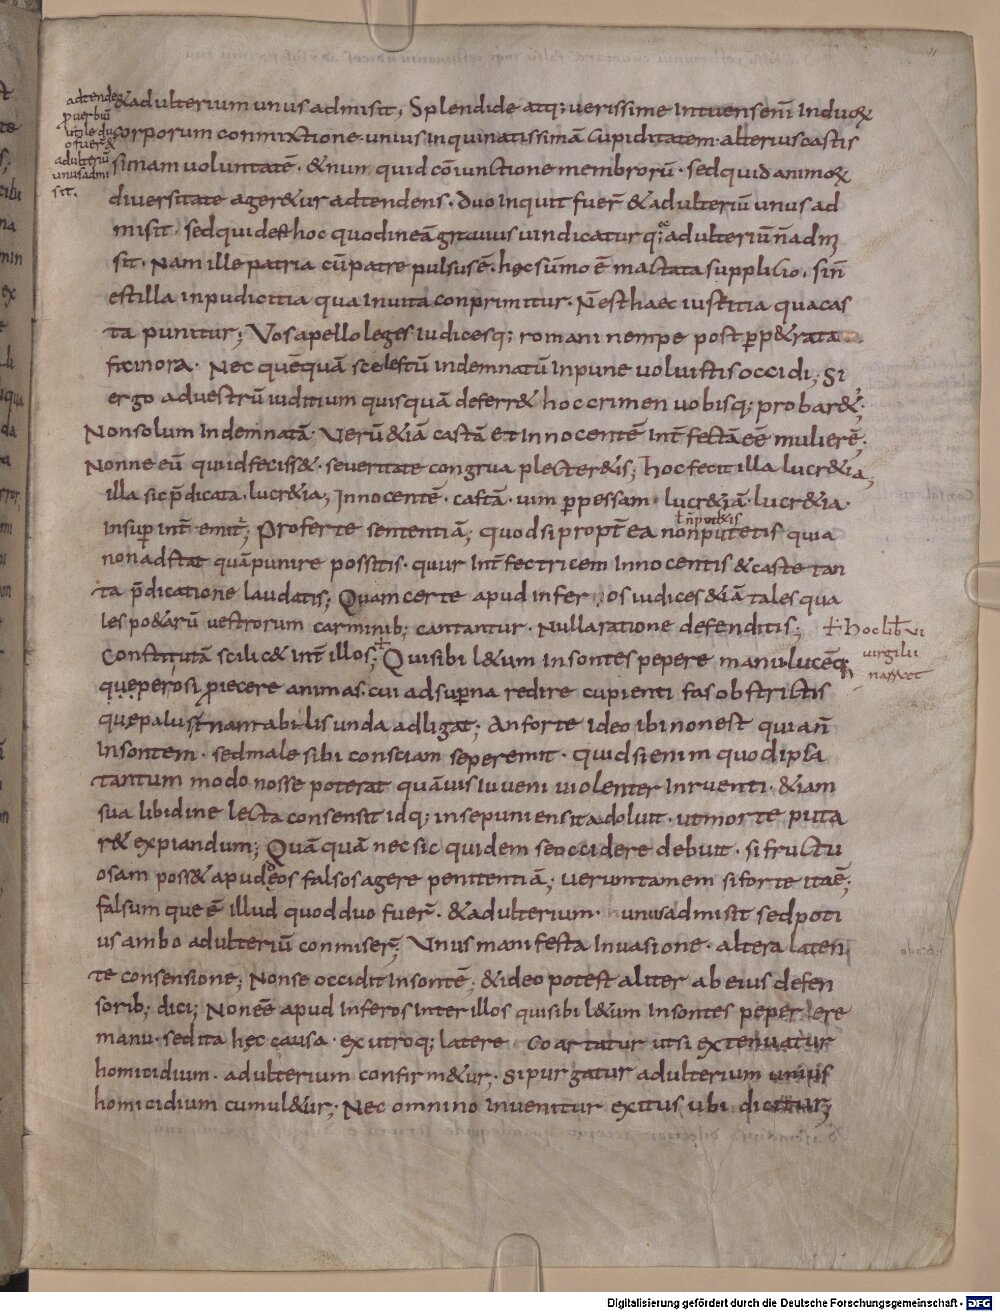 adtende
ꝓuerbiū
utile duo
fuer̄ &
adulteriū
unus admi
sit.
& adulterium unus admisit. Splendide atq; uerissime Intuens enī Induoꝝ
corporum conmixtione unius Inquinatissimā Cupiditatem alterius castis
simam uoluntatē. & nun quid coniunctione membrorū. sed quid animoꝝ
diuersitate ager&ur adtendens. duo Inquit fuer̄ & adulteriū unus ad
misit. sed quid est hoc quod in eā grauius uindicatur q; adulteriū n̄ adm̄
sit. Nam ille patria cū patre pulsus ē. hęc sūmo ē mactata supplicio. sin̄
est illa inpudicitia qua Inuita conprimitur. N̄ est haec iustitia qua cas
ta punitur; Vos apello leges iudicesq; romani nempe post ꝑp&rata
facinora. Nec quēquā scelestū indemnatū Inpune uoluistis occidi; Si
ergo ad uestrū iuditium quisquā deferr& hoc crimen uobisq; probar&;
Non solum Indemnatā. Verū &iā castā et Innocentē Int̄fectā eē mulierē.
Nonne eū qui id feciss& seueritate congrua plecter&is; hoc fecit illa lucr&ia,
illa sic p̄dicata. lucr&ia; Innocentē. castā. uim ꝑpessam. lucr&iā. lucr&ia.
Insuꝑ int̄emit; Proferte sententiā; quod si propt̄ea non putetis quia
non adstat quā punire possitis. quur Int̄fectricem Innocentis & caste tan
ta p̄dicatione laudatis; Quam certe apud infer os iudices &iā tales qua
les po&arū uestrorum carminib; cantantur. Nulla ratione defenditis;
hoc lib̄ vi
virgilii
Constitutā scilic& int̄ illos; Qui sibi l&um Insontes pepere manu lucēq;
que perosi proiecere animas. cui ad suꝑna redire cupienti fas obstrictis
que palus Inamabilis unda adligat; An forte ideo ibi non est quia n̄
Insontem. sed male sibi consciam se peremit. quid si enim quod ipsa
tantum modo nosse poterat quāuis iuueni uiolenter Inruenti. &iam
sua libidine lecta consensit idq; in se puniens ita doluit. ut morte puta
r& expiandum; Quā quā nec sic quidem se occidere debuit. si fructu
osam poss& apud deos falsos agere penitentiā; uerumtamen si forte ita ē;
falsum que ē illud quod duo fuer̄. & adulterium unus admisit sed poti
us ambo adulteriū conmiser̄; Vnus manifesta Inuasione. altera laten
te consensione; Non se occidit Insontē; & ideo potest aliter ab eius defen
sorib; dici; Non eē apud Inferos Inter illos qui sibi l&um Insontes peperere
manu. sed ita hęc causa. ex utroq; latere Coartatur ut si extenuatur
homicidium. adulterium confirm&ur; Si purgatur adulterium
homicidium cumul&ur; Nec omnino Inuenitur exitus ubi dicitur;
Digitalisierung gefördert durch die Deutsche Forschungsgemeinschaft - DFG